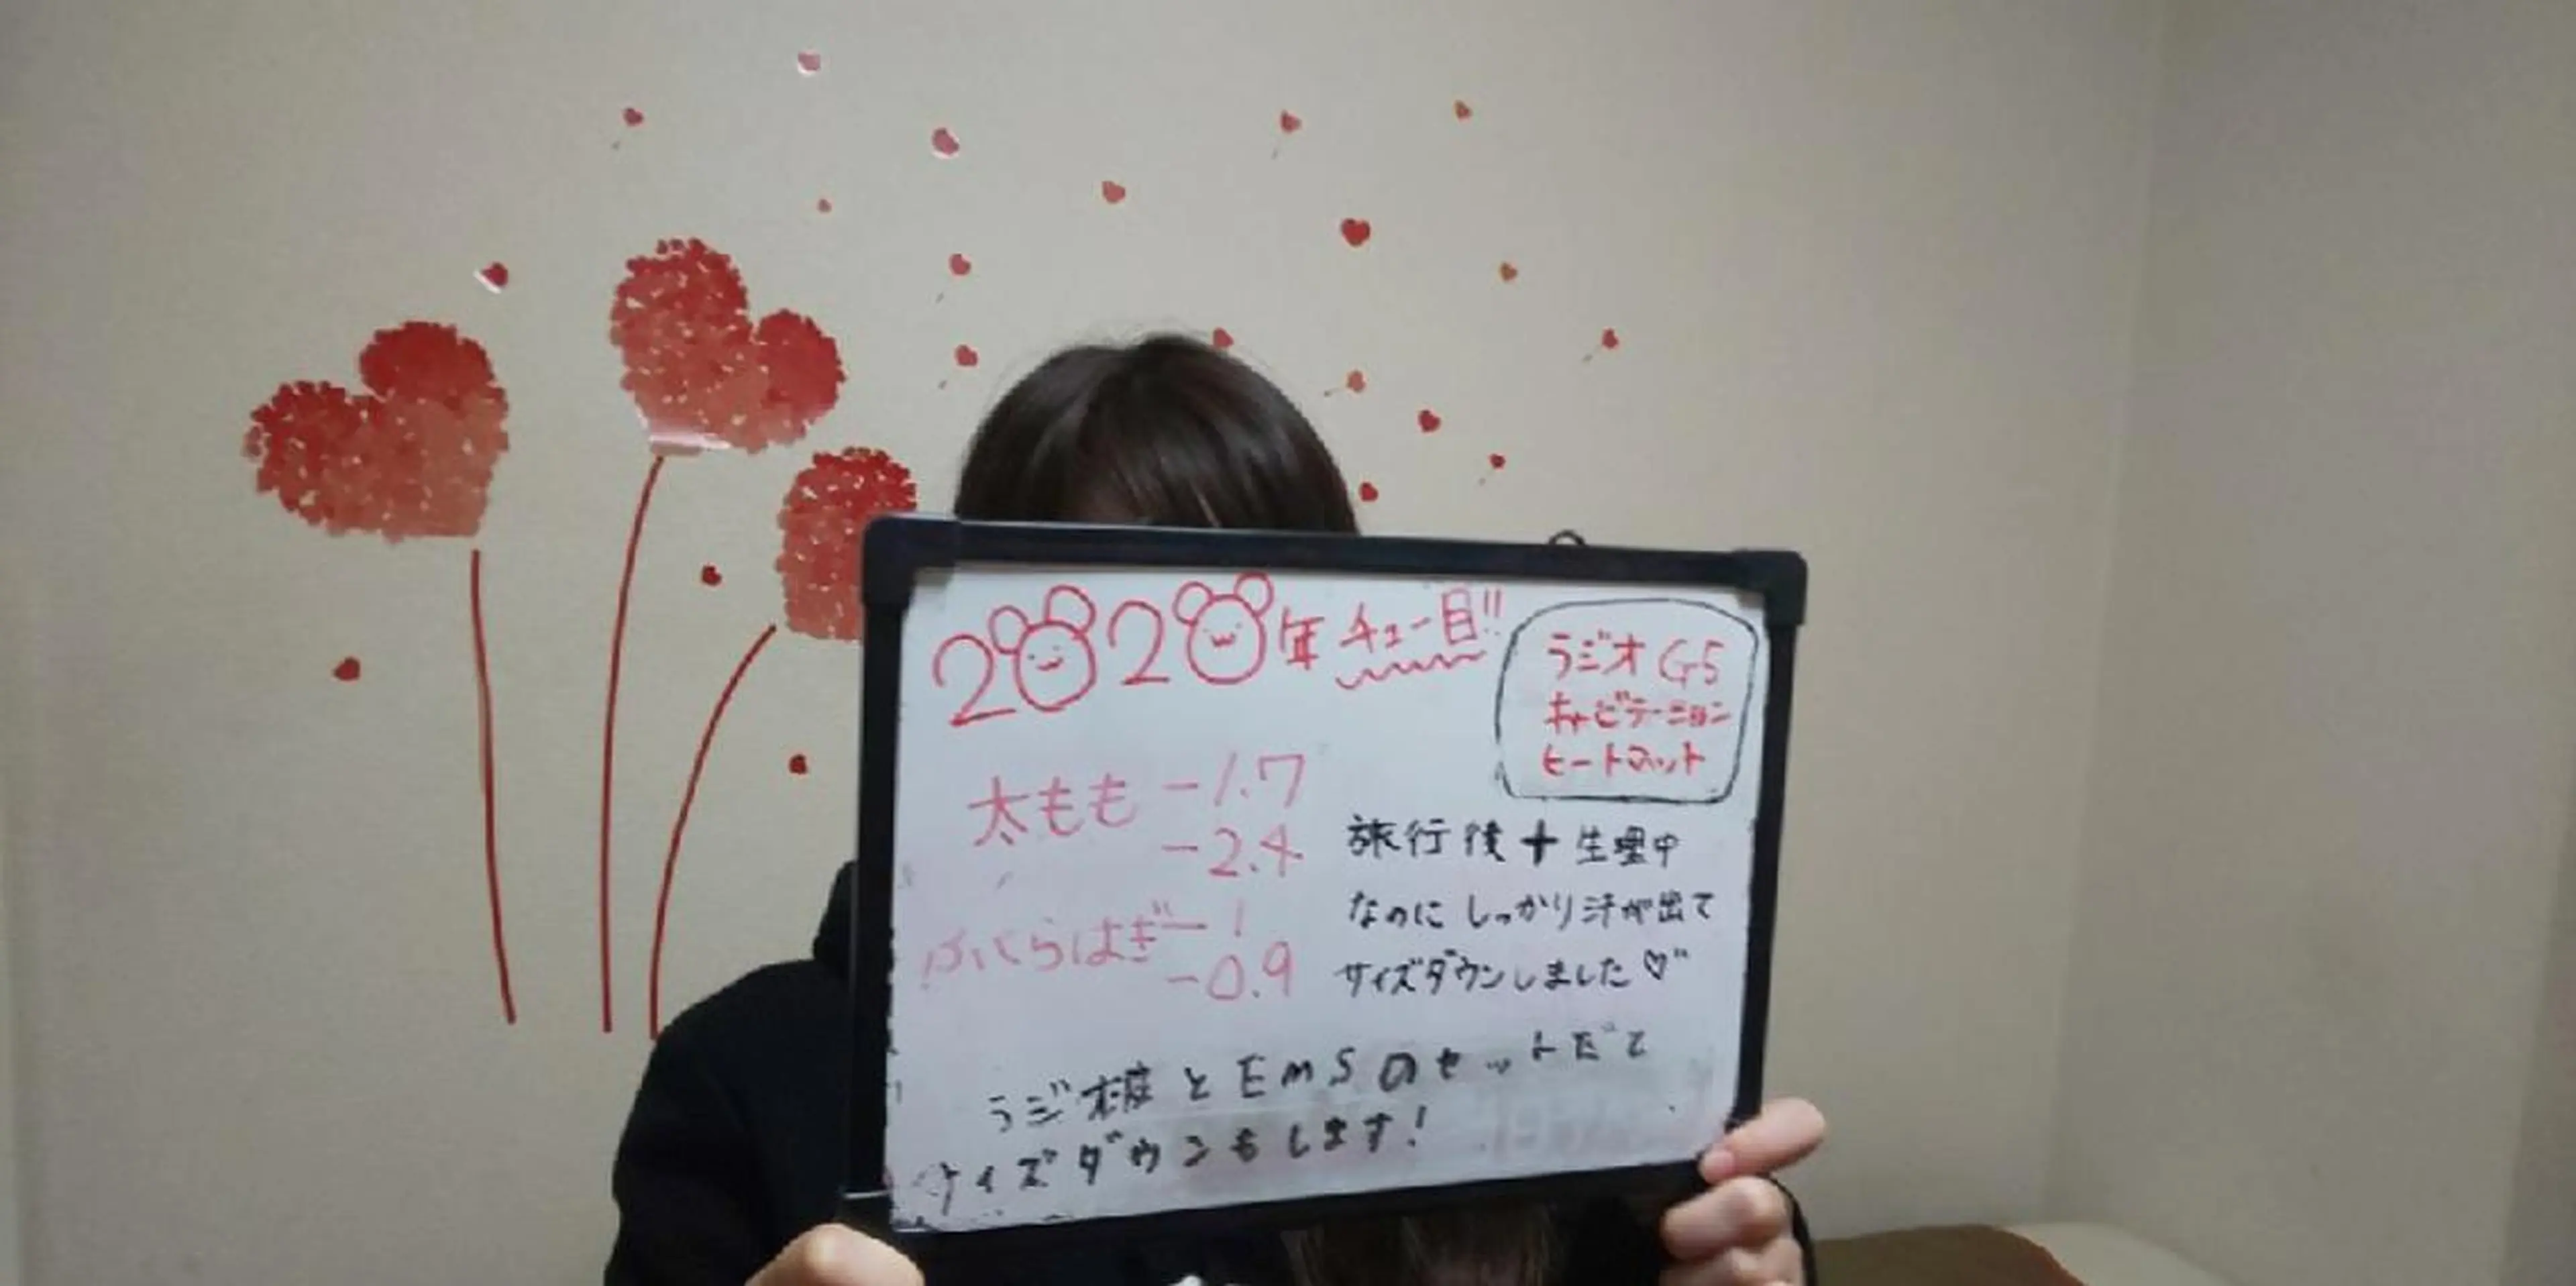 2020年チュー目!!
ラジオ G5
キャビテーション
ヒートマット
太もも -1.7
-2.4
ふくらはぎ -1
-0.9
旅行後+生理中
なのに しっかり汗が出て
サイズダウンしました♡"
と EMSのセットだと
サイズダウンもします!